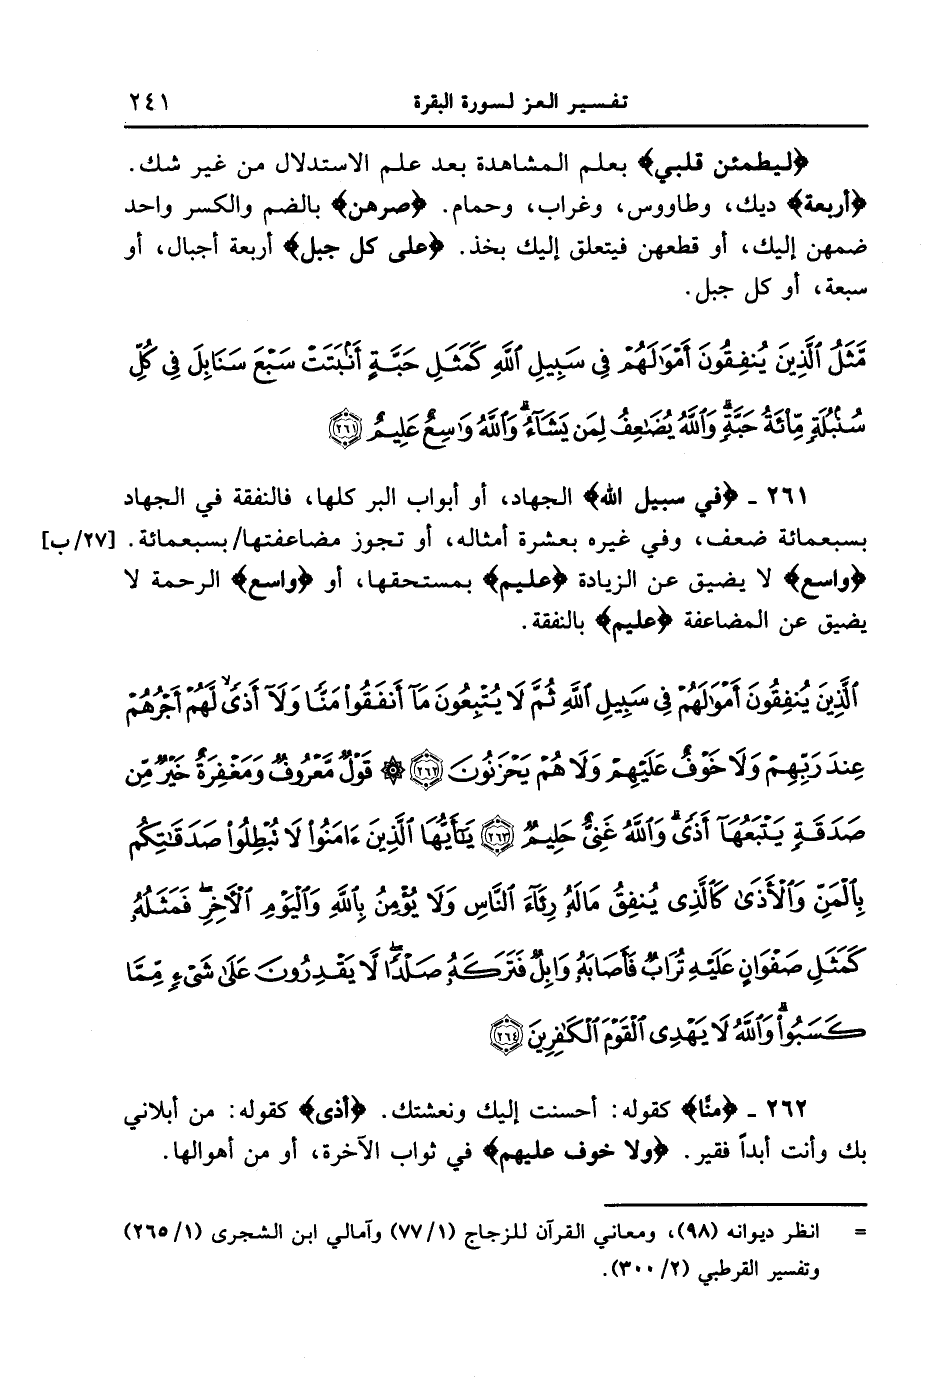 تفسير العز لسورة البقرة ٢٤١
﴿ليطمئن قلبي﴾ بعلم المشاهدة بعد علم الاستدلال من غير شك.
﴿أربعة﴾ ديك، وطاووس، وغراب، وحمام. ﴿صرهن﴾ بالضم والكسر واحد
ضمهن إليك، أو قطعهن فيتعلق إليك بخذ. ﴿على كل جبل﴾ أربعة أجبال، أو
سبعة، أو كل جبل.
مَّثَلُ ٱلَّذِينَ يُنفِقُونَ أَمْوَٰلَهُمْ فِى سَبِيلِ ٱللَّهِ كَمَثَلِ حَبَّةٍ أَنۢبَتَتْ سَبْعَ سَنَابِلَ فِى كُلِّ
سُنۢبُلَةٍ مِّا۟ئَةُ حَبَّةٍ ۗ وَٱللَّهُ يُضَٰعِفُ لِمَن يَشَآءُ ۗ وَٱللَّهُ وَٰسِعٌ عَلِيمٌ ﴿٢٦١﴾
٢٦١ ـ ﴿في سبيل الله﴾ الجهاد، أو أبواب البر كلها، فالنفقة في الجهاد
بسبعمائة ضعف، وفي غيره بعشرة أمثاله، أو تجوز مضاعفتها/بسبعمائة. [٢٧/ب]
﴿واسع﴾ لا يضيق عن الزيادة ﴿عليم﴾ بمستحقها، أو ﴿واسع﴾ الرحمة لا
يضيق عن المضاعفة ﴿عليم﴾ بالنفقة.
ٱلَّذِينَ يُنفِقُونَ أَمْوَٰلَهُمْ فِى سَبِيلِ ٱللَّهِ ثُمَّ لَا يُتْبِعُونَ مَآ أَنفَقُوا۟ مَنًّا وَلَآ أَذًى ۙ لَّهُمْ أَجْرُهُمْ
عِندَ رَبِّهِمْ وَلَا خَوْفٌ عَلَيْهِمْ وَلَا هُمْ يَحْزَنُونَ ﴿٢٦٢﴾ ۞ قَوْلٌ مَّعْرُوفٌ وَمَغْفِرَةٌ خَيْرٌ مِّن
صَدَقَةٍ يَتْبَعُهَآ أَذًى ۗ وَٱللَّهُ غَنِىٌّ حَلِيمٌ ﴿٢٦٣﴾ يَٰٓأَيُّهَا ٱلَّذِينَ ءَامَنُوا۟ لَا تُبْطِلُوا۟ صَدَقَٰتِكُم
بِٱلْمَنِّ وَٱلْأَذَىٰ كَٱلَّذِى يُنفِقُ مَالَهُۥ رِئَآءَ ٱلنَّاسِ وَلَا يُؤْمِنُ بِٱللَّهِ وَٱلْيَوْمِ ٱلْـَٔاخِرِ ۖ فَمَثَلُهُۥ
كَمَثَلِ صَفْوَانٍ عَلَيْهِ تُرَابٌ فَأَصَابَهُۥ وَابِلٌ فَتَرَكَهُۥ صَلْدًا ۖ لَّا يَقْدِرُونَ عَلَىٰ شَىْءٍ مِّمَّا
كَسَبُوا۟ ۗ وَٱللَّهُ لَا يَهْدِى ٱلْقَوْمَ ٱلْكَٰفِرِينَ ﴿٢٦٤﴾
٢٦٢ ـ ﴿منًّا﴾ كقوله: أحسنت إليك ونعشتك. ﴿أذى﴾ كقوله: من أبلاني
بك وأنت أبداً فقير. ﴿ولا خوف عليهم﴾ في ثواب الآخرة، أو من أهوالها.
= انظر ديوانه (٩٨)، ومعاني القرآن للزجاج (١/ ٧٧) وآمالي ابن الشجرى (١/ ٢٦٥)
وتفسير القرطبي (٢/ ٣٠٠).